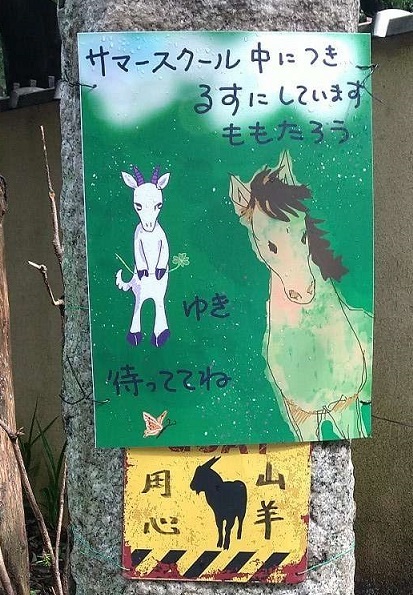 サマースクール中につき
るすにしています
ももたろう
ゆき
待っててね
用心
山羊